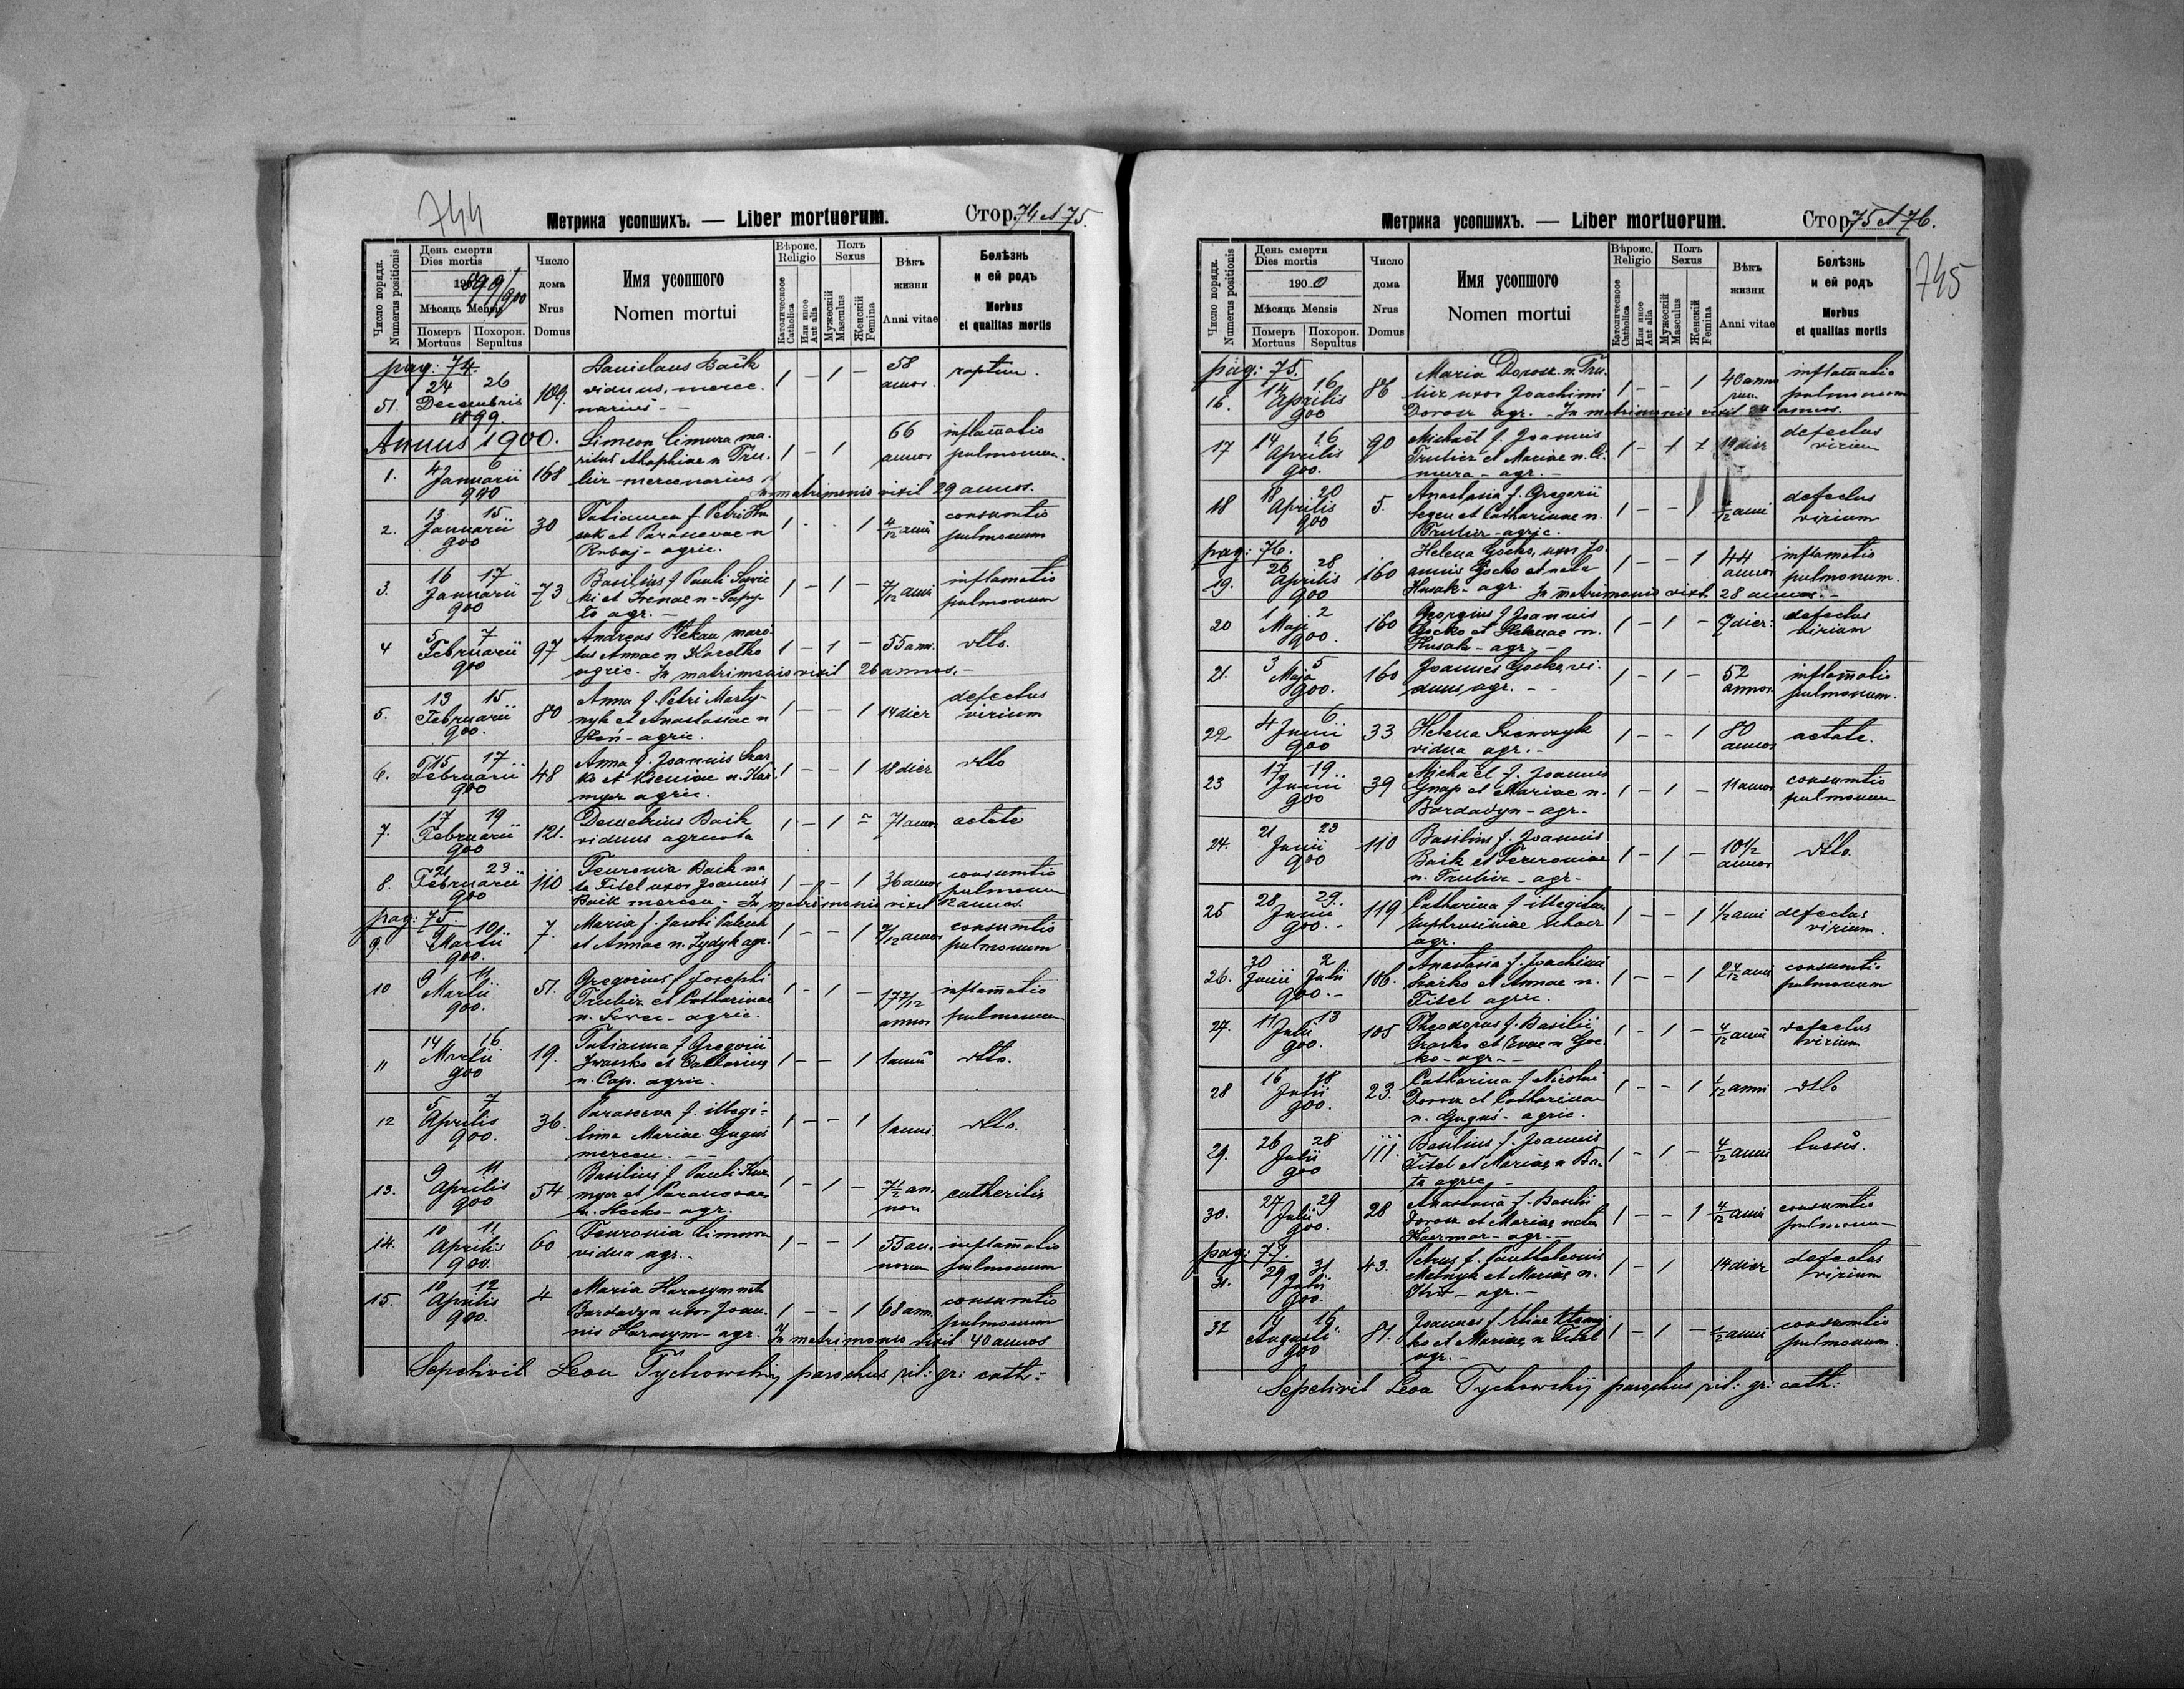 744
Метрика усопшихъ. — Liber mortuorum.
Стор. 74 et 75.
Число порядк. Numerus positionis
День смерти
Dies mortis
1899/900
Мѣсяць Mensis
Померъ Mortuus
Похорон. Sepultus
Число дома
Nrus Domus
Имя усопшого
Nomen mortui
Вѣроис. Religio
Католическое Catholica
Или иное Aut alia
Полъ Sexus
Мужескій Masculus
Женскій Femina
Вѣкъ жизни
Anni vitae
Болѣзнь и ей родъ
Morbus et qualitas mortis
pag: 74.
51. 24 26 Decembris 899 109. Baik viduus, mercenarius 1 – 1 – 58 annos raptim.
Annus 1900.
1. 4 6 Januarii 900 168 Simeon Cimura maritus Ahaphiae n Trubisz - mercenarius 1 – 1 66 annos inflammatio pulmonum.
In matrimonio vixit 29 annos.
2. 13 15 Januarii 900 30 Tatianna f Petri Husak et Parascevae n Rubaj - agric. 1 - - 1 4/12 anni consumtio pulmonum
3. 16 17 Januarii 900 73 Basilius f Pauli et Irenae n. agr. 1 – 1 – 7/12 anni inflamatio pulmonum
4 5 7 Februarii 900 97 Andreas maritus Annae n agric. In matrimonio vixit 26 annos. 1 – 1 – 55 ann. dtto.
5. 13 15 Februarii 900. 80 Anna f. Petri Martynyk et Anastasiae n - agric. 1 – – 1 14 dier defectus virium
6. 15 17 Februarii 900 48 Anna f. Joannis et n. agric. 1 – – 1 18 dier dtto
7. 17 19 Februarii 900 121. Demetrius Baik viduus agricola 1 – 1 – 71 annos aetate
8. 21 23 Februarii 900 110 Feuronia Baik nata Fitel uxor Joannis Baik mercen - In matrimonio vixit 12 annos. 1 – – 1 36 annos consumtio pulmonum
pag: 75.
9. 10 Martii 900. 7. Maria f. Jacobi et Annae n. Zydyk agr. 1 – – 1 7/12 annos consumtio pulmonum
10 9 11 Martii 900. 51. Gregorius f Josephi Trubisz et Catharinae n. - agric. 1 – 1 – 17 7/12 annos inflammatio pulmonum
11 14 16 Martii 900 19. Tatianna f Gregorii Iwasko et Catharinae n. Cap. agric. 1 – – 1 1 anni dtto.
12 5 7 Aprilis 900. 36. Parasceva f. illegitima Mariae Guguś mercen. 1 – – 1 1 anni. dtto.
13. 9 11 Aprilis 900 54 Basilius f Pauli et Parascevae n. Hecko - agr. 1 – 1 – 7 1/2 annor catherilis
14. 10 11 Aprilis 900. 60 Feuronia Cimura vidua agr. 1 – – 1 55 annorum inflammatio pulmonum
15. 10 12 Aprilis 900. 4 Maria Harasym nata Bardadyn uxor Joannis Harasym - agr. In matrimonio vixit 40 annos 1 – – 1 68 ann. consumtio pulmonum
Sepelivit Leon Tychowskij parochus rit: gr: cath:
745
Метрика усопшихъ. — Liber mortuorum.
Стор. 75 et 76.
Число порядк. Numerus positionis
День смерти
Dies mortis
1900
Мѣсяць Mensis
Померъ Mortuus
Похорон. Sepultus
Число дома
Nrus Domus
Имя усопшого
Nomen mortui
Вѣроис. Religio
Католическое Catholica
Или иное Aut alia
Полъ Sexus
Мужескій Masculus
Женскій Femina
Вѣкъ жизни
Anni vitae
Болѣзнь и ей родъ
Morbus et qualitas mortis
pag: 75.
16. 14 16 Aprilis 900 86 Maria Dorosz n. Trubisz uxor Joachimi Dorosz agr. - In matrimonio vixit 24 annos. 1 – – 1 40 annorum inflammatio pulmonum
17 14 16 Aprilis 900. 90 Michaël f. Joannis Trubisz et Mariae n. Cimura - agr. - 1 – 1 19 dier defectus virium
18 18 20 Aprilis 900 5. Anastasia f. Gregorii et Catharinae n. Trubisz - agric. 1 – – 1 /12 anni defectus virium
pag: 76.
19. 26 28 Aprilis 900 160 Helena Gocko, uxor Joannis Gocko et nata Husak - agr. In matrimonio vixit 28 annos. - 1 – – 1 44 annos inflamatio pulmonum.
20 1 2 Maji 900. 160 Georgius f Joannis Gocko et Helenae n. Husak - agr. - 1 – 1 – 7 dier: defectus virium
21. 3 5 Maja 900. 160 Joannes Gocko, viduus, agr. - - 1 – 1 – 52 annos. inflammatio pulmonum.
22 4 6 Junii 900 33 Helena Szewczyk vidua agr. - 1 – – 1 80 annos aetate.
23 17 19 Junii 900 39 Michaël f. Joannis Gnap et Mariae n. Bardadyn - agr- 1 – 1 – 11 annos consumtio pulmonum
24. 21 23 Junii 900 110 Basilius f. Joannis Baik et Feuroniae n. Trubisz - agr- 1 – 1 – 10 1/2 annos dtto.
25 28 29. Junii 900. - 119 Catharina f illegitim Euphrosiniae agr. 1 – – 1 1/2 anni defectus virium.
26. 30 Junii 2 Julii 900. - 106. Anastasia f. Joachimi et Annae n. Fitel agric. 1 – – 1 2 4/12 anni consumtio pulmonum
27. 11 13 Julii 900. 105 Theodorus f. Basilii et Evae n Gocko - agr- - 1 – 1 – 4/12 anni defectus virium
28 16 18 Julii 900. 23. Catharina f Nicolai Dorosz et Catharinae n. Guguś - agric. 1 – – 1 1/12 anni dtto
29. 26 28 Julii 900 111. Basilius f. Joannis Fitel et Mariae n agric - 1 – 1 – 4/12 anni tussis.
30. 27 29 Julii 900. 28 Anastasia f. Basilii Dorosz et Mariae nata - agr. - 1 – – 1 4/12 anni consumtio pulmonum
pag: 77.
31. 29 31 Julii 900. 43. Petrus f. Panthaleonis Melnyk et Mariae n. - agr. - 1 – 1 14 dier defectus virium
32 14 16 Augusti 900 81. Joannes f. Eliae et Mariae n Fitel agr. - 1 – 1 – 1/2 anni consumtio pulmonum.
Sepelivit Leon Tychowskij parochus rit: gr: cath: